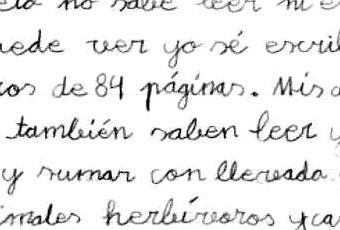 no sabe leer ni e
uede ver yo sé escrib
cos de 84 páginas. Mis a
también saben leer y
y sumar con llevada
imales herbívoros y ca